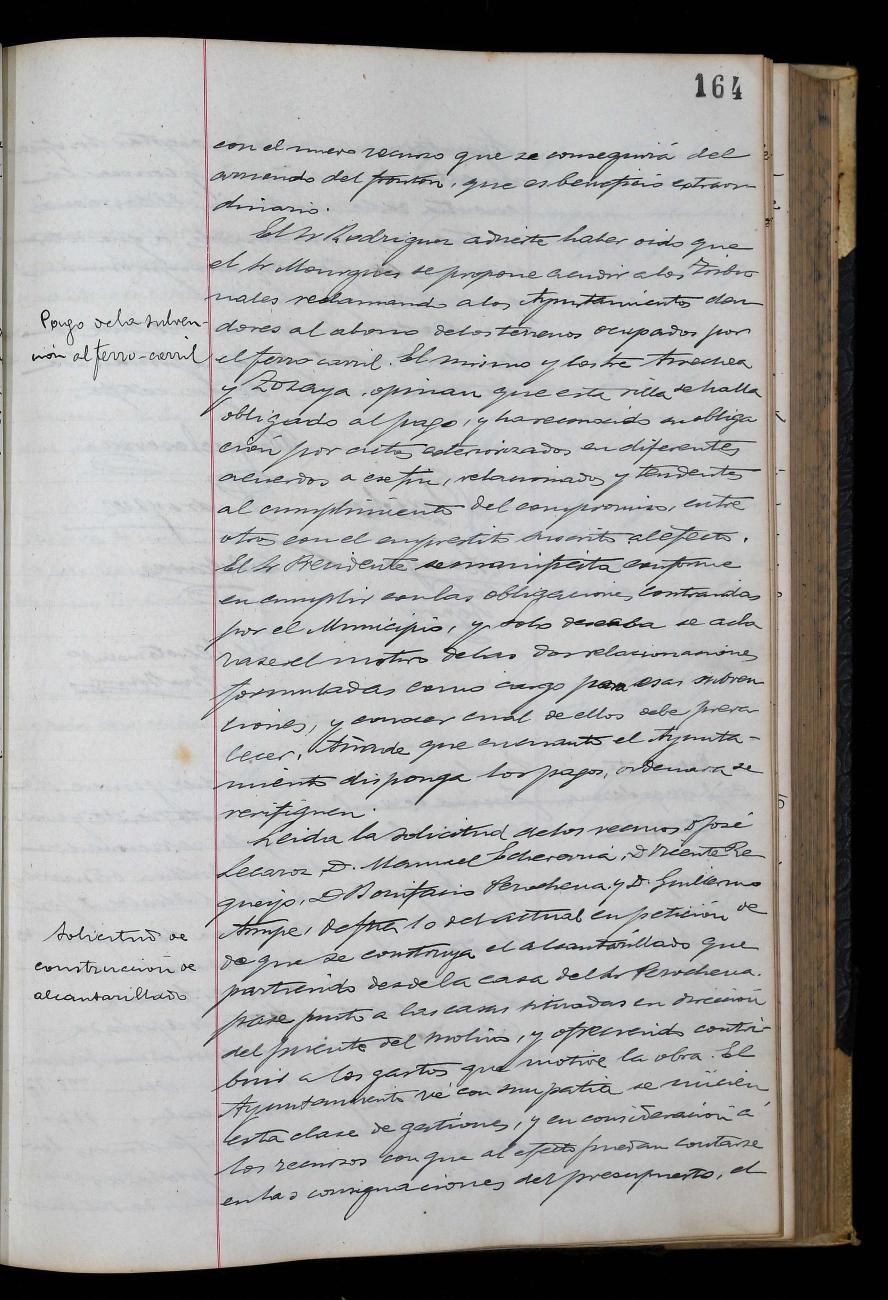 164
con el nuevo recurso que se conseguirá del
arriendo del frontón, que es beneficio extraor
dinario.
El Sr Rodriguez advierte haber oido que
el Sr Mourgues se propone acudir a los Tribu
nales reclamando a los Ayuntamientos deu
Pago de la subven-
ción al ferro-carril
dores al abono de los terrenos ocupados por
el ferro carril. El mismo y los Sres Arrechea
y Zozaya, opinan que esta villa se halla
obligado al pago, y ha reconocido su obliga
ción por actos exteriorizados en diferentes
acuerdos a ese fin, relacionados y tendentes
al cumplimiento del compromiso, entre
otros con el emprestito suscrito al efecto.
El Sr Presidente se manifiesta conforme
en cumplir con las obligaciones contraidas
por el Municipio, y solo deseaba se acla
rase el motivo de las dos relacionaciones
formuladas como cargo para esas subven
ciones, y conocer cual de ellos debe preva
lecer. Añade que en cuanto el Ayunta-
miento disponga los pagos, ordenara se
verifiquen.
Leida la solicitud de los vecinos D José
Lecaroz, D. Manuel Echeverria, D Vicente Re
queijo, D Bonifacio Perochena y D. Guillermo
de fha 10 del actual en petición de
Solicitud de
construcción de
alcantarillado
de que se construya el alcantarillado que
partiendo desde la casa del Sr Perochena.
pase junto a las casas situadas en dirección
del puente del molino, y ofreciendo contri-
buir a los gastos que motive la obra. El
Ayuntamiento vé con simpatia se inicien
esta clase de gestiones, y en consideración á
los recursos con que al efecto puedan contarse
en las consignaciones del presupuesto, el